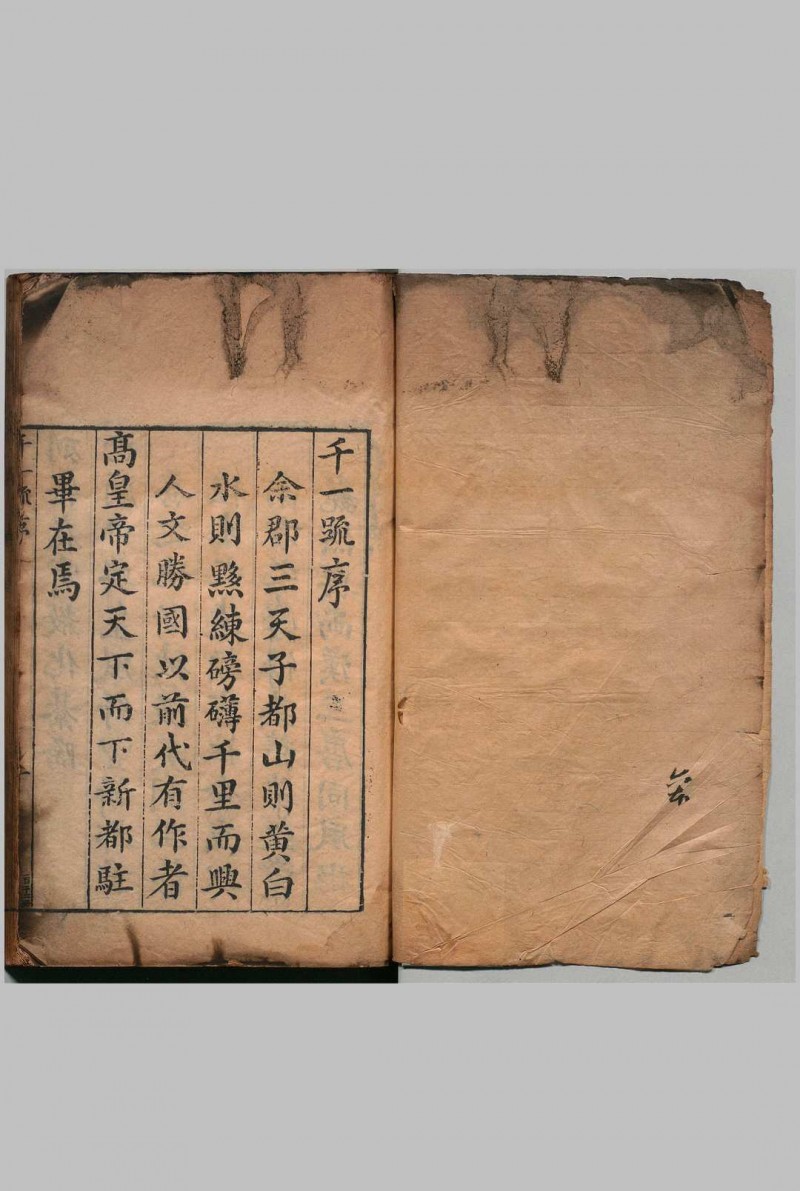 千一䟽序
余郡三天子都山則黄白
水則黟練磅礴千里而興
人文勝國以前代有作者
髙皇帝定天下而下新都駐
畢在焉
千一䟽序